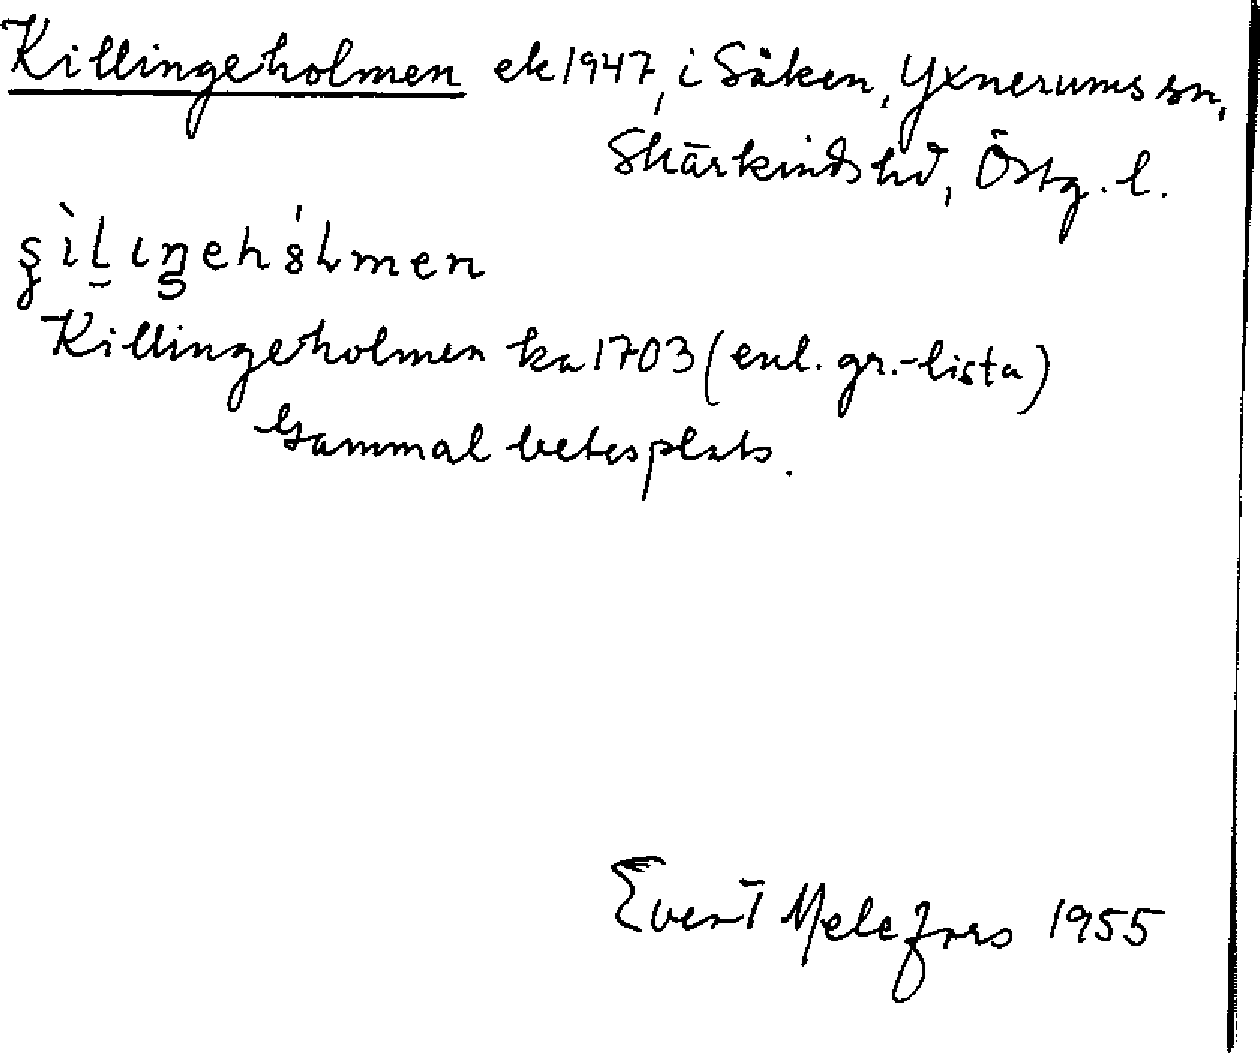 Killingeholmen ek 1947, i Säken, Yxnerums sn,
Skärkinds hd, Östg. l.
Killingeholmen ka 1703 (enl. gr.-lista)
Gammal betesplats.
Evert Melefors 1955